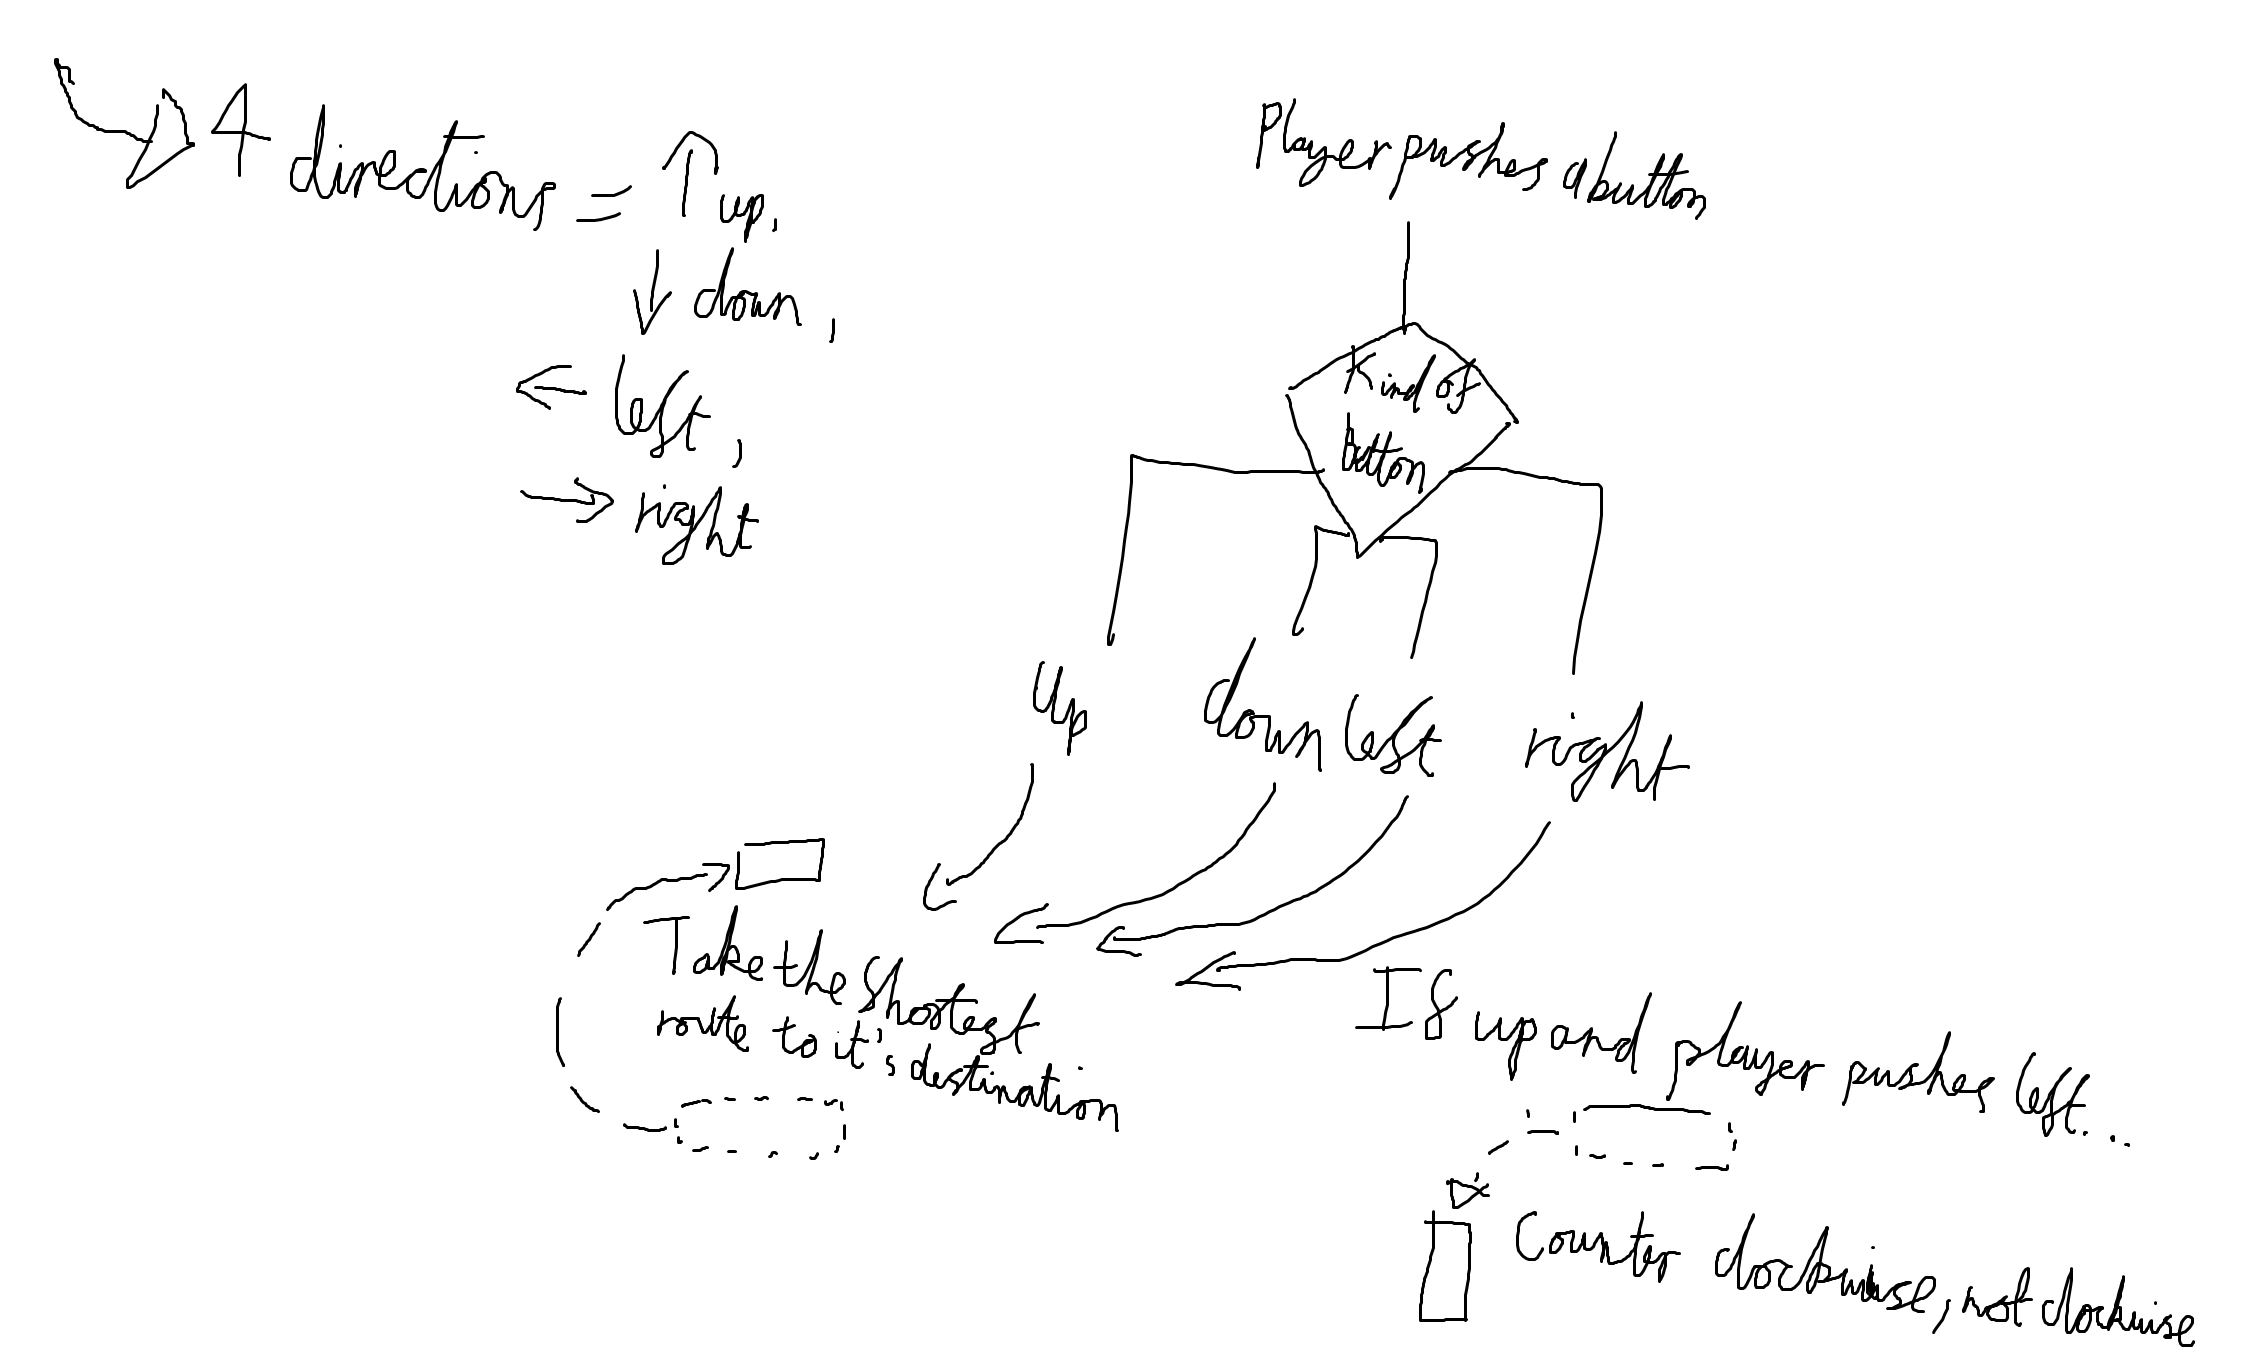 4 directions = ↑ up,
↓ down,
← left,
→ right
Player pushes a button
Kind of
button
Up down left right
Take the shortest
route to it's destination
If up and player pushes left...
Counter clockwise, not clockwise